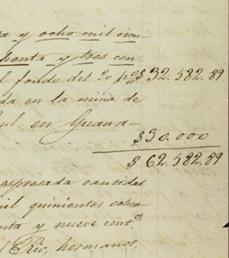 ta y ocho mil cien
chenta y tres cen
l fondo del 20 p% $32.582.89
da en la mina de
ul en Guana-
$30.000
$62.582.89
espresada cantidad
mil quinientos ochen
nta y nueve cent.
l Rio, hermanos,